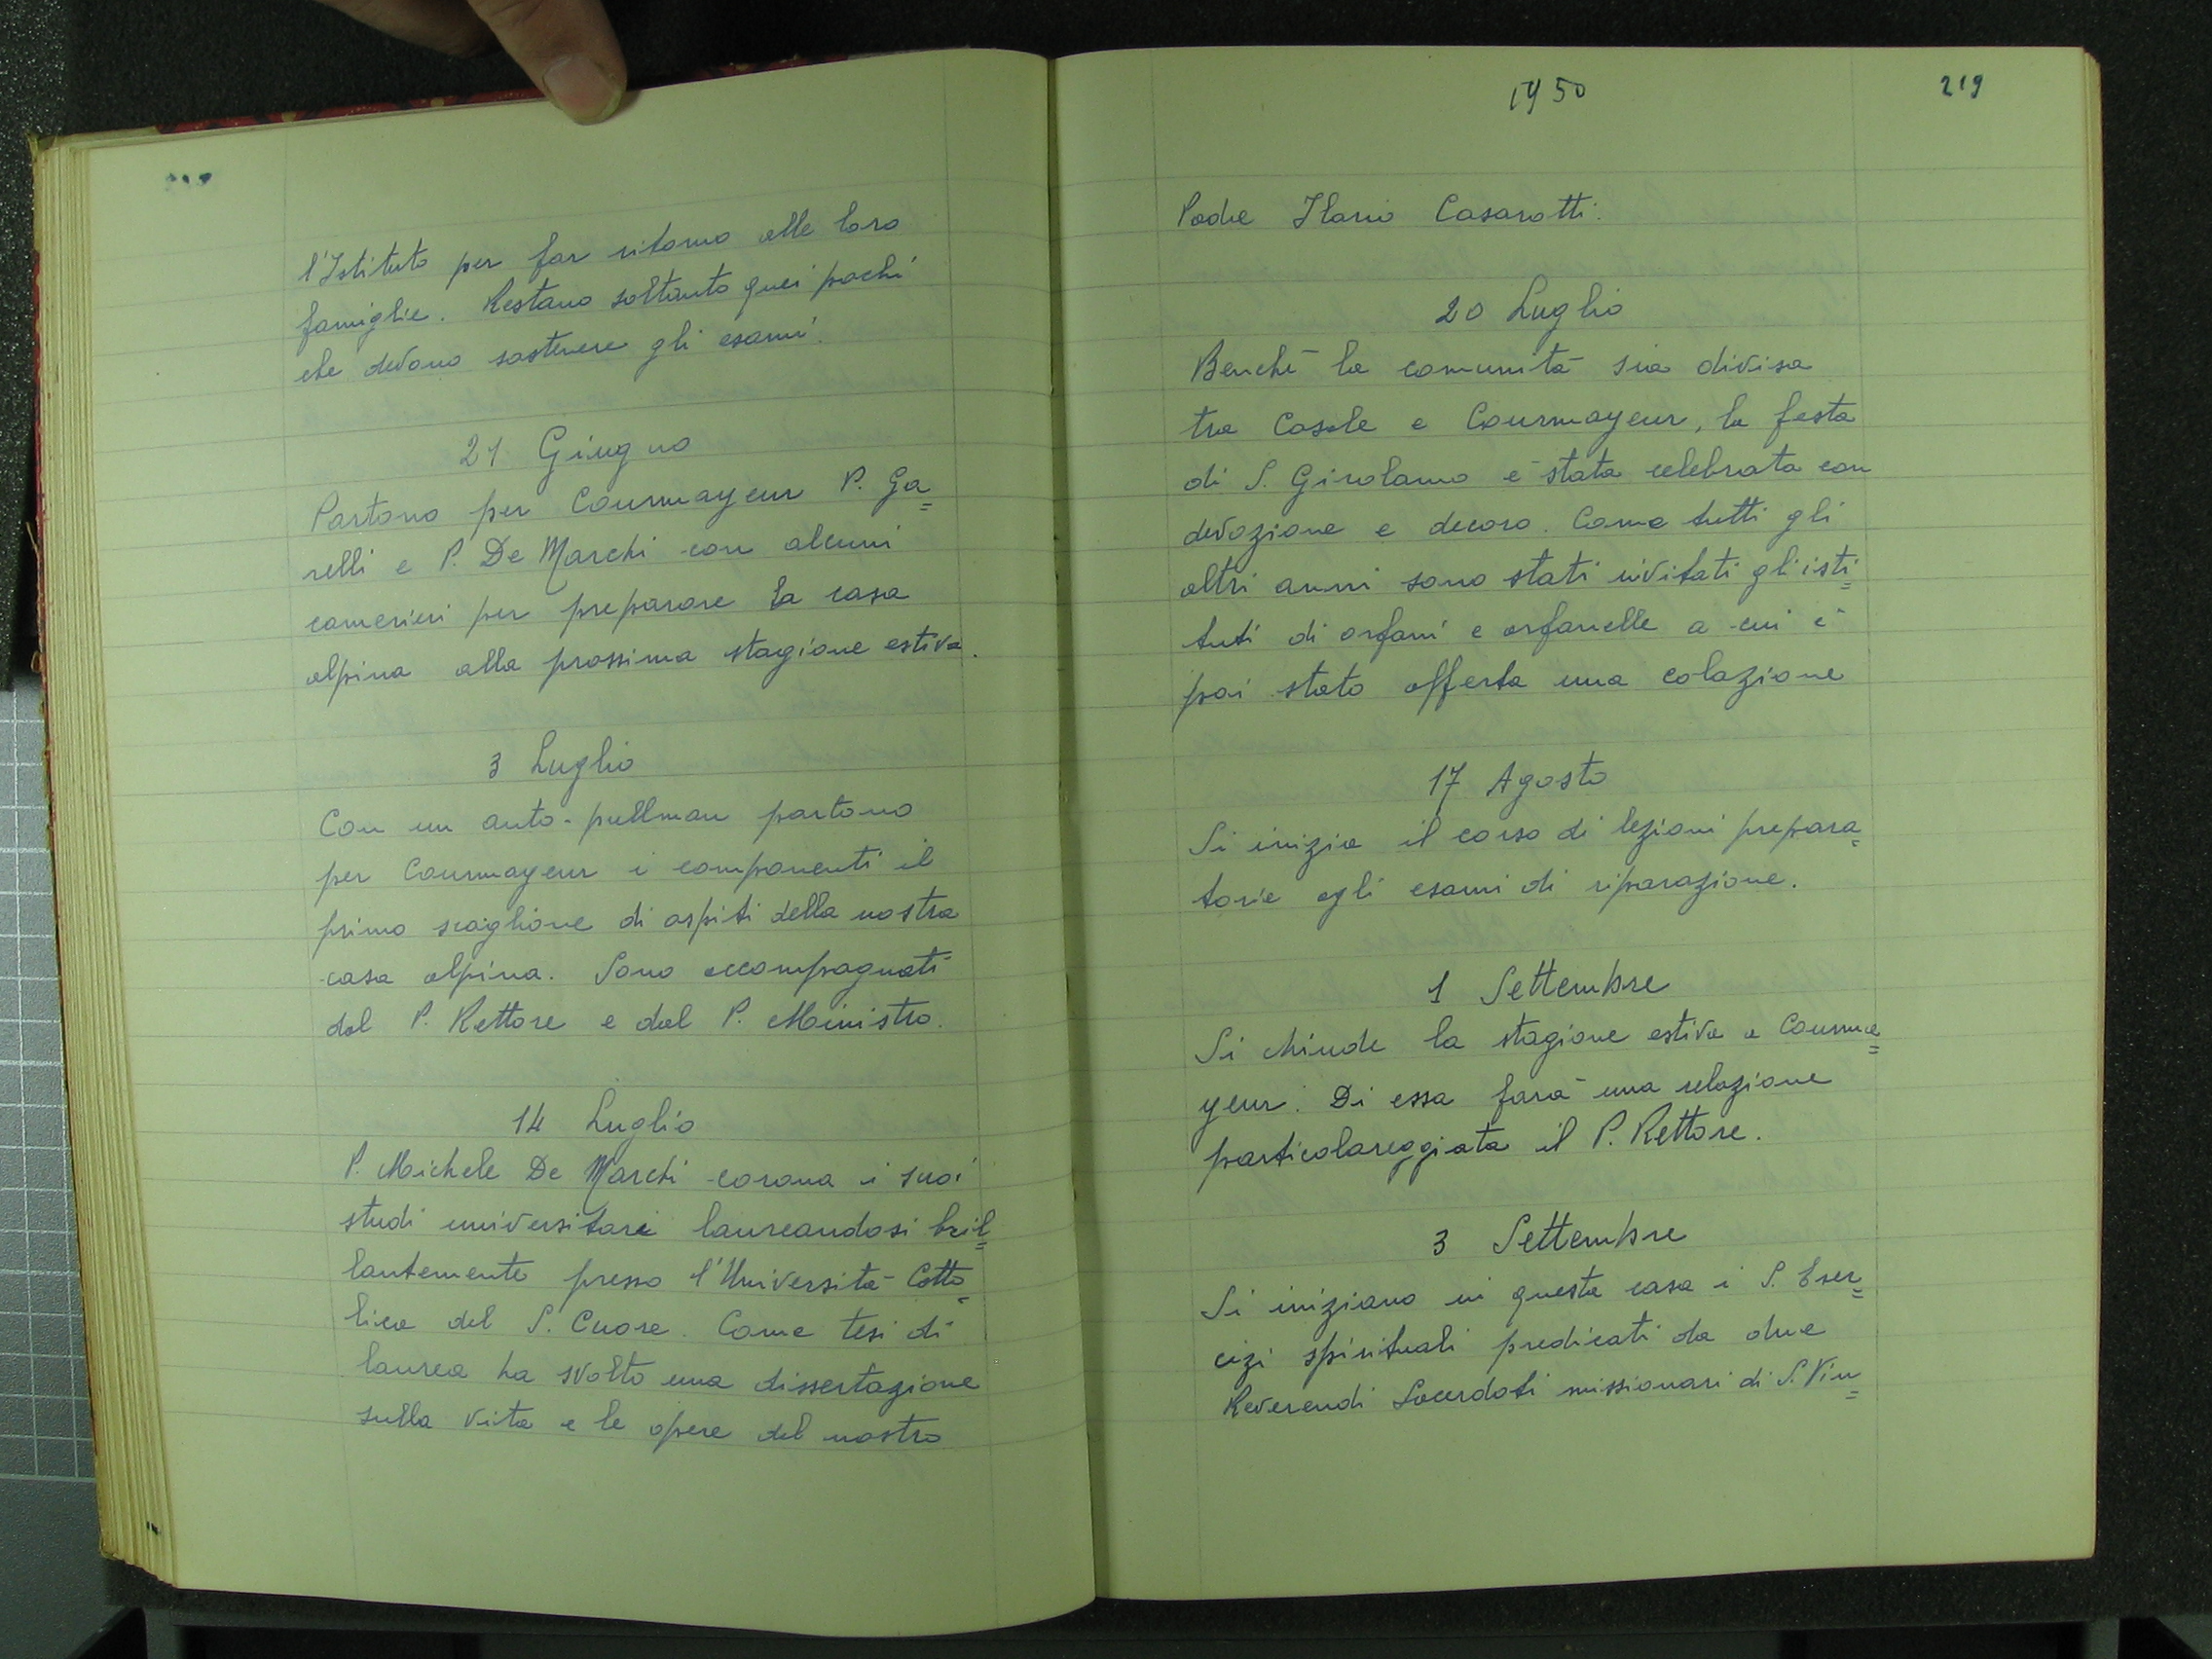 l'Istituto per far ritorno alle loro
famiglie. Restano soltanto quei pochi
che devono sostenere gli esami.
21 Giugno
Partono per Courmayeur P. Ga=
relli e P. De Marchi con alcuni
camerieri per preparare la casa
alpina alla prossima stagione estiva.
3 Luglio
Con un auto-pullman partono
per Courmayeur i componenti il
primo scaglione di ospiti della nostra
casa alpina. Sono accompagnati
dal P. Rettore e dal P. Ministro.
14 Luglio
P. Michele De Marchi corona i suoi
studi universitari laureandosi bril=
lantemente presso l'Università Catto=
lica del S. Cuore. Come tesi di
laurea ha svolto una dissertazione
sulla vita e le opere del nostro
1950
219
Padre Ilario Casarotti.
20 Luglio
Benchè la comunità sia divisa
tra Casale e Courmayeur, la festa
di S. Girolamo è stata celebrata con
devozione e decoro. Come tutti gli
altri anni sono stati invitati gli isti=
tuti di orfani e orfanelle a cui è
poi stato offerta una colazione
17 Agosto
Si inizia il corso di lezioni prepara=
torie agli esami di riparazione.
1 Settembre
Si chiude la stagione estiva a Courma=
yeur. Di essa farà una relazione
particolareggiata il P. Rettore.
3 Settembre
Si iniziano in questa casa i S. Eser=
cizi spirituali predicati da due
Reverendi Sacerdoti missionari di S. Vin=